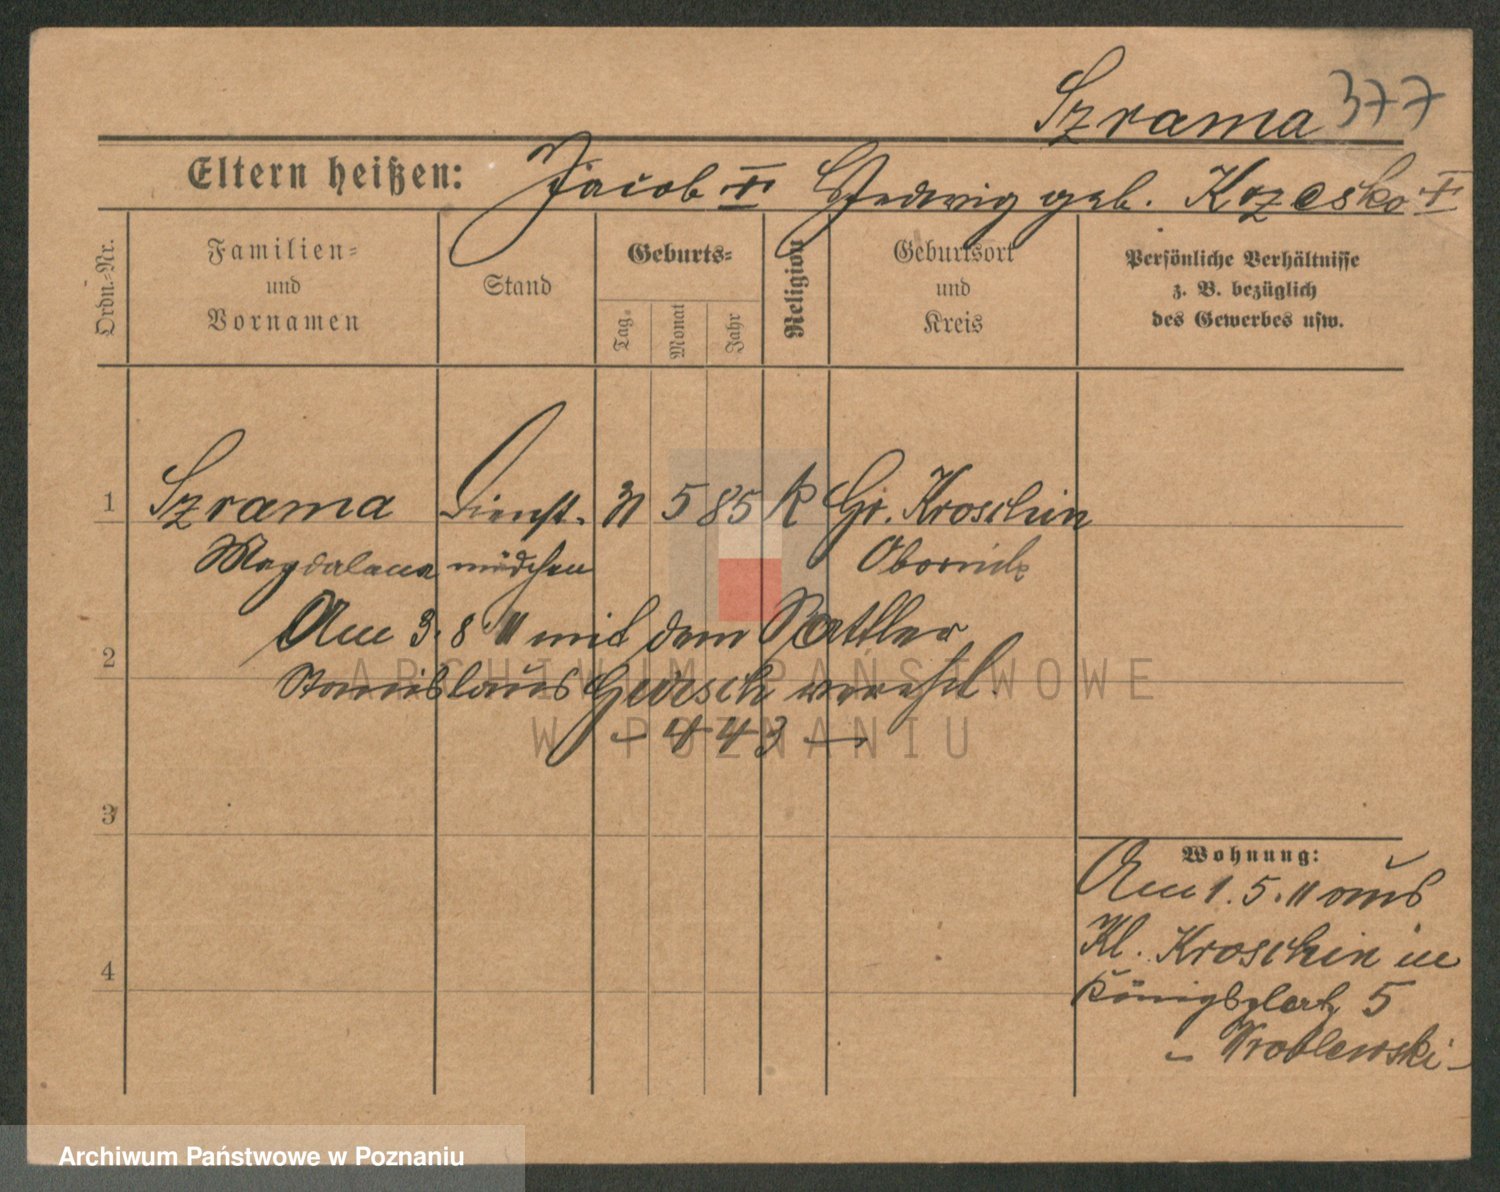 Szrama 377
Eltern heißen: Jacob † Hedwig geb. Kozesko †
Ordn.-Nr.
Familien-
und
Vornamen
Stand
Geburts-
Tag-
Monat
Jahr
Religion
Geburtsort
und
Kreis
Persönliche Verhältnisse
z. B. bezüglich
des Gewerbes usw.
1 Szrama Dienst- 31 5 85 K Gr. Kroschin
Magdalena mädchen Obornik
Am 3.8 11 mit dem Sattler
2
Stanislaus verehel.
- 443 -
3
Wohnung:
Am 1.5.11 aus
Kl. Kroschin in
4
Königsplatz 5
- Wroblewski -
ARCHIWUM PAŃSTWOWE
W POZNANIU
Archiwum Państwowe w Poznaniu